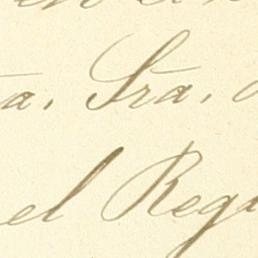 a. Sra.
el Reg